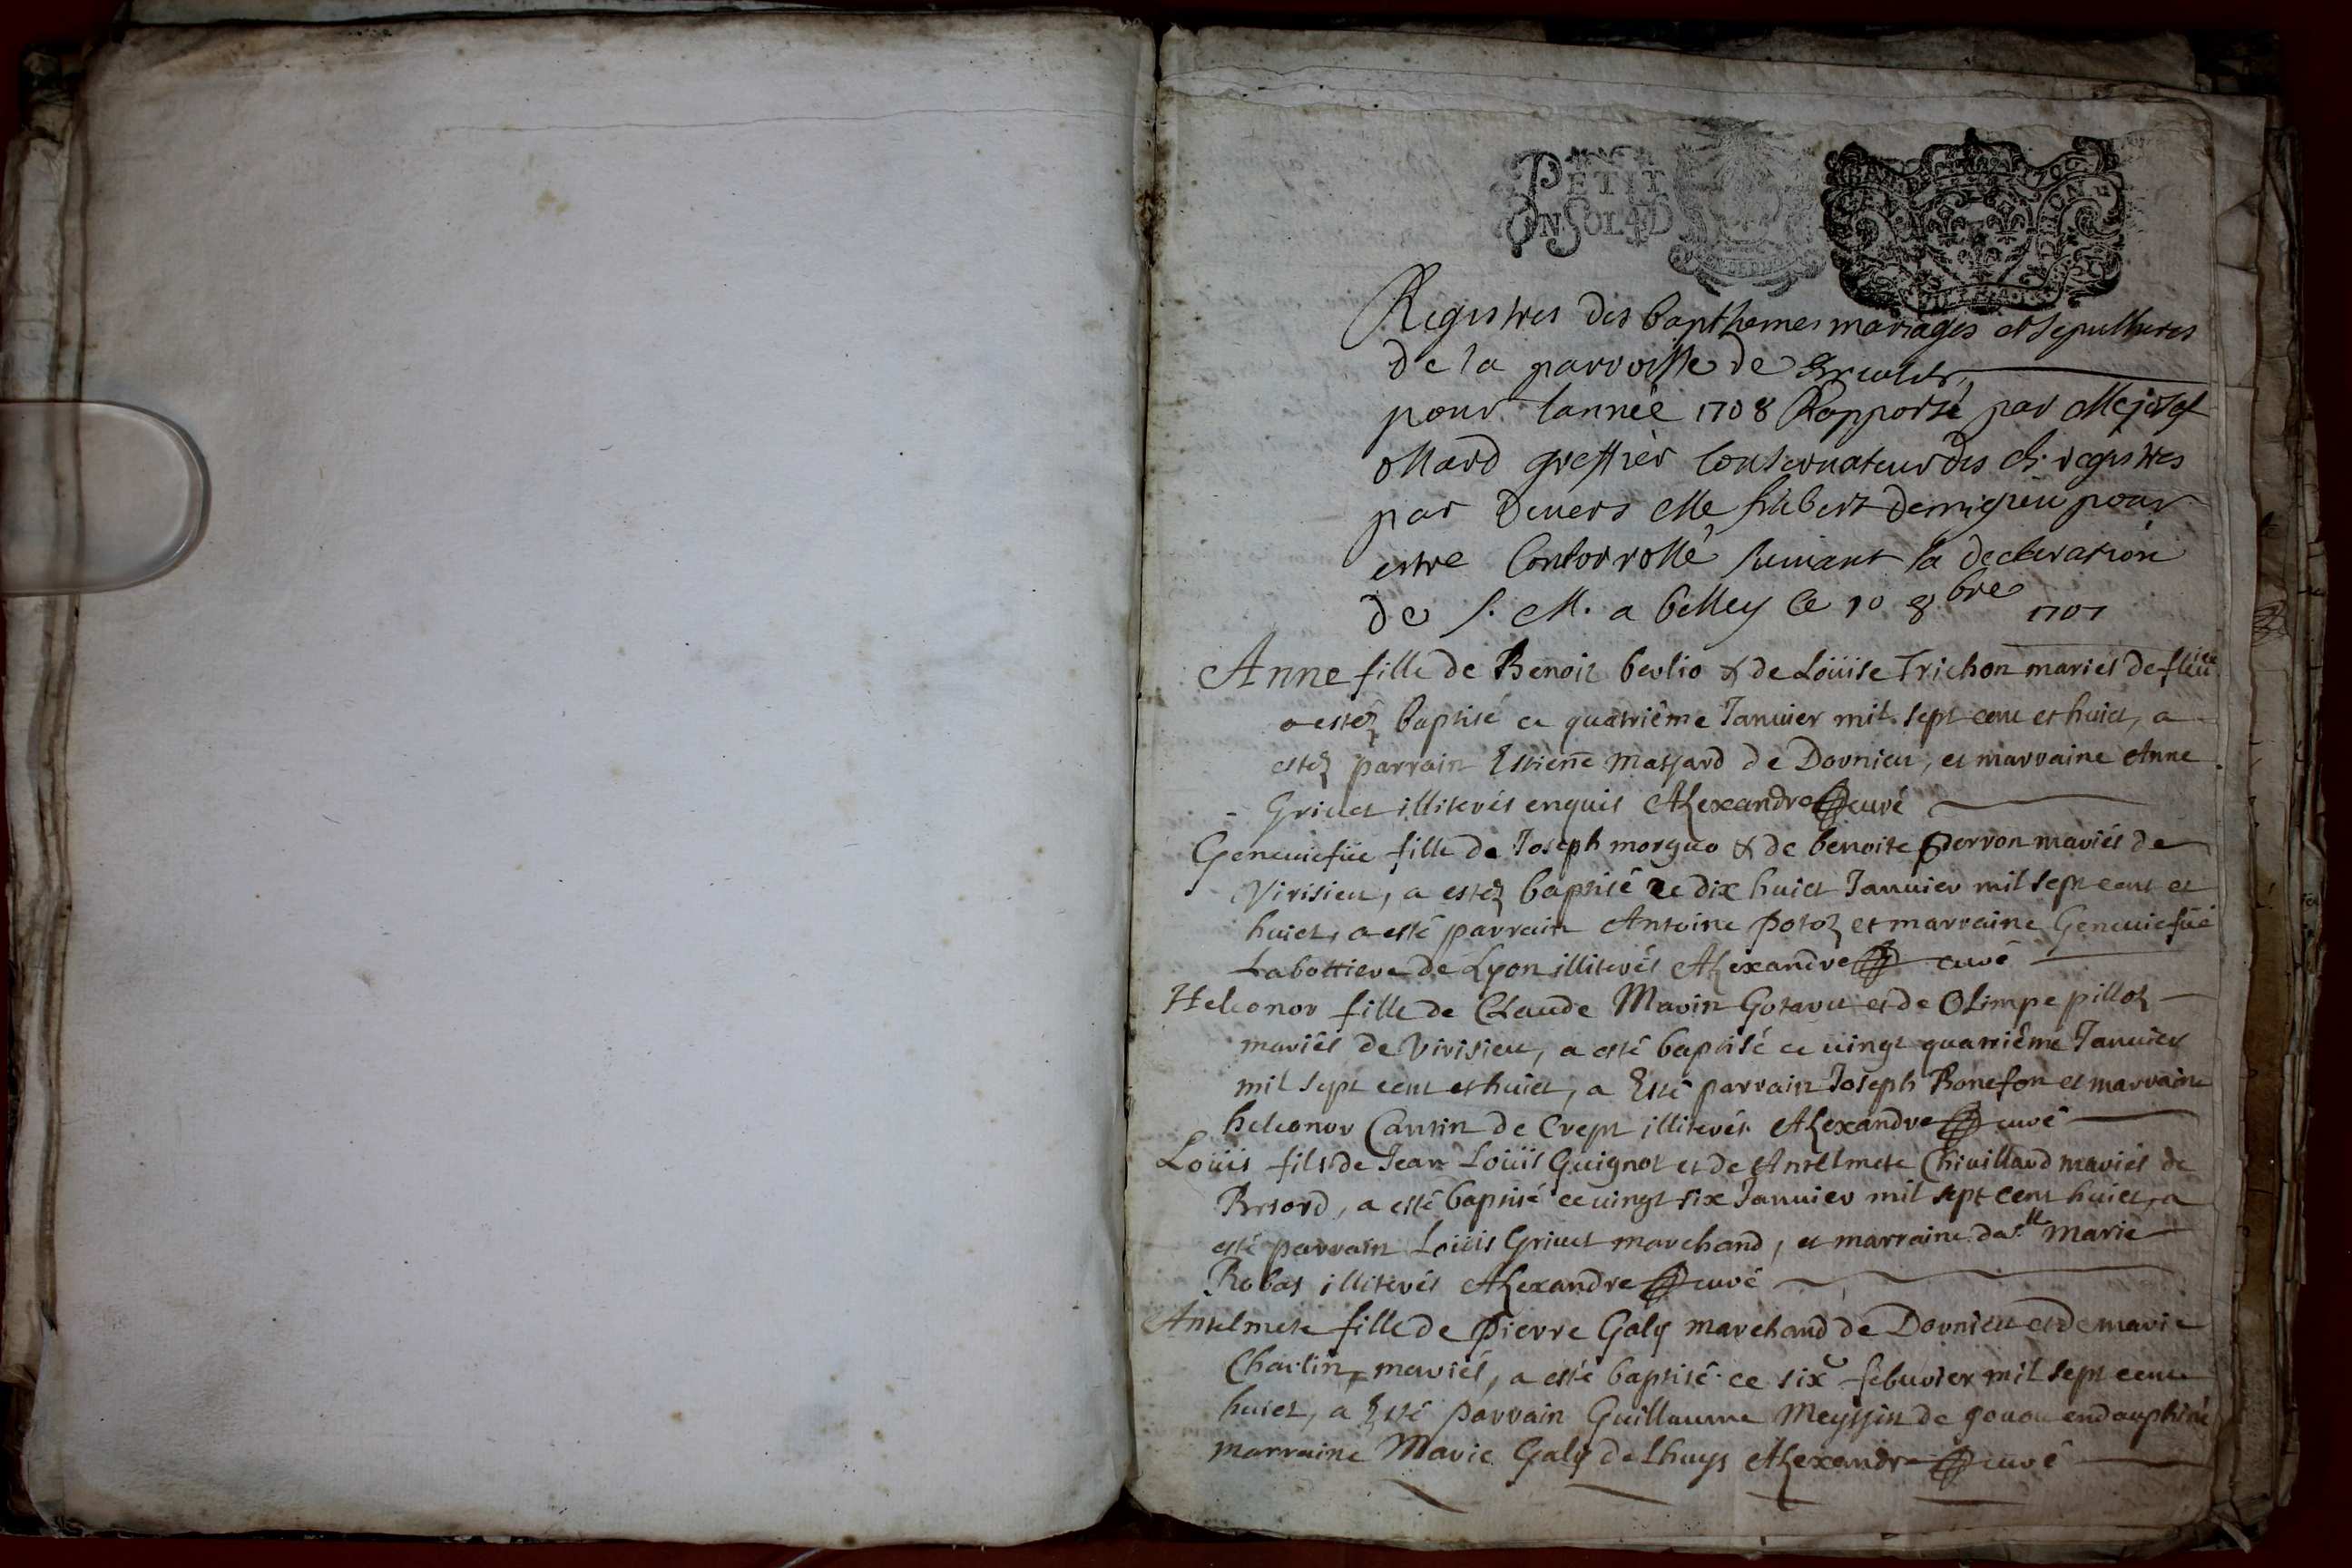 PETIT
ONSOL 4D
Registres des bapthemes mariages et sepultures
de la parroisse de
pour lannée 1708 Rapporté par Me josef
ollard greffier Conservateur des d. registres
par devers Me hubert demigieu pour
estre Contorrollé suivant la declaration
de S. M. a belley ce 10 8bre 1707
Anne fille de Benoit berlio & de Loüise Trichon mariés de
a estéz baptisé ce quatriême Januier mil sept cent et huict, a
estéz parrain Estienne Massard de Dornieu, et marraine Anne
Griuet illiterés enquis Alexandre curé
Geneuiefue fille de Joseph morguo & de benoite perron mariés de
Virisieu, a estéz baptisé ce dix huict Januier mil sept cent et
huict, a esté parrain Antoine potoz et marraine Geneuiefue
Labottiere de Lyon illiterés Alexandre curé
Heleonor fille de Claude Marin Gotaru et de Olimpe pilloz
mariés de Virisieu, a esté baptisé ce uingt quatriême Januier
mil sept cent et huict, a Esté parrain Joseph Bonefon et marraine
heleonor Cantin de Crept illiterés Alexandre curé
Loüis fils de Jean Loüis Guignot et de Antelmete Chiuillard mariés de
Briord, a esté baptisé ce uingt six Januier mil sept cent huict, a
esté parrain Loüis Griuet marchand, et marraine dalle Marie
Robat illiterés Alexandre curé
Antelmete fille de Pierre Galy marchand de Dornieu et de marie
Charlin mariés, a esté baptisé ce six februier mil sept cent
huict, a Esté parrain Guillaume Meyssin de en dauphiné
marraine Marie Galy de Lhuys Alexandre curé